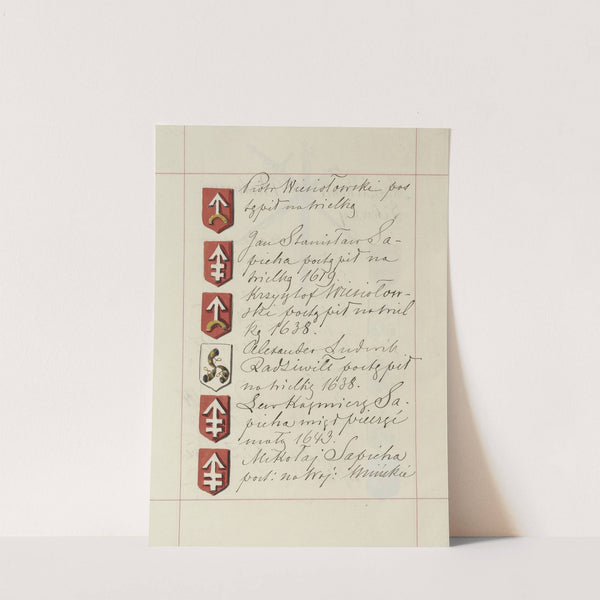 Piotr Wiesiołowski pos
tąpił na wielką
Jan Stanisław Sa-
pieha postąpił na
wielką 1619.
Krzysztof Wiesiołow-
ski postąpił na wiel
ką 1638.
Alexander Ludwik
Radziwiłł postąpił
na wielką 1638.
Lew Kazmierz Sa-
pieha
małą 1643.
Mikołaj Sapieha
post: na Woj: Mińskie